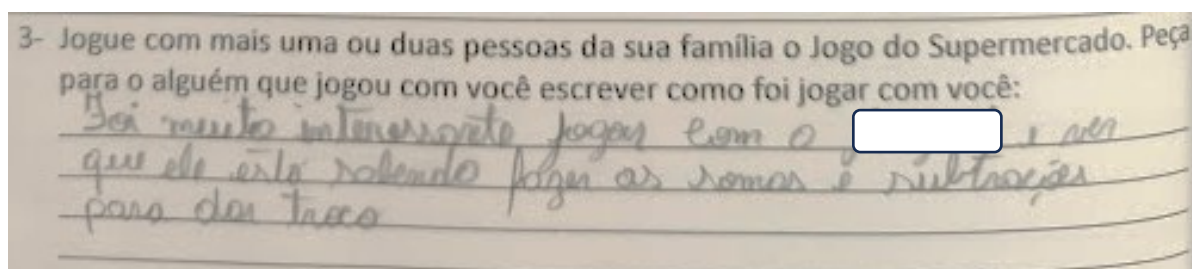 3- Jogue com mais uma ou duas pessoas da sua família o Jogo do Supermercado. Peça
para o alguém que jogou com você escrever como foi jogar com você:
Foi muito interessante jogar com o e ver
que ele está sabendo fazer as somas e subtrações
para dar troco